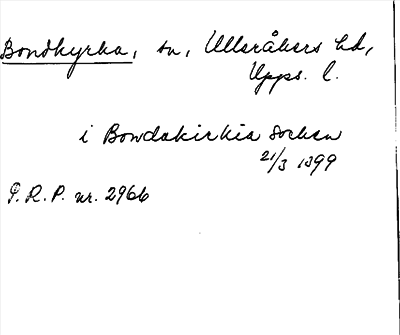 Bondkyrka, sn, Ulleråkers hd,
Upps. l.
i Bowdakirkia sochen
21/3 1399
P.R.P. nr. 2966